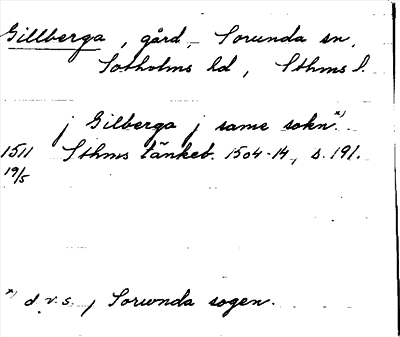 Gillberga, gård, Sorunda sn,
Sotholms hd, Sthms l.
j Gilberga j same sokn x)
1511 Sthms tänkeb. 1504-14, s. 191.
19/5
x) d.v.s. j Sorunda sogen.